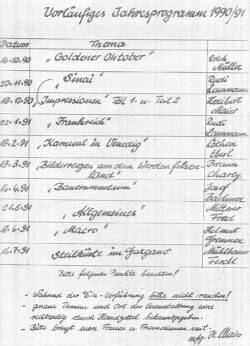 Vorläufiges Jahresprogramm 1990/91
Datum Thema
16.10.90 „Goldener Oktober" Erich Müller
20.11.90 „Sinai" Rudi
18.12.90 „Impressionen" Teil 1. u. Teil 2 Heribert Maier
22.1.91 „Frankreich" Rudi
19.2.91 „Karneval in Venedig" Lothar Eberl
19.3.91 „Bilderreigen aus dem Werdenfelser Land" Braun Charly
16.4.91 „Bauernmuseum" Josef
21.5.91 „Allgemeines" Mitterer
18.6.91 „Macro" Helmut
16.7.91 Steilküste im Gargano
Bitte folgende Punkte beachten!
- Während der Dia-Vorführung bitte nicht rauchen!
- genaue Termine und Ort der Veranstaltung wird
rechtzeitig durch Handzettel bekanntgegeben.
- Bitte bringt eure Frauen u. Freundinnen mit.
mfg. H. Maier